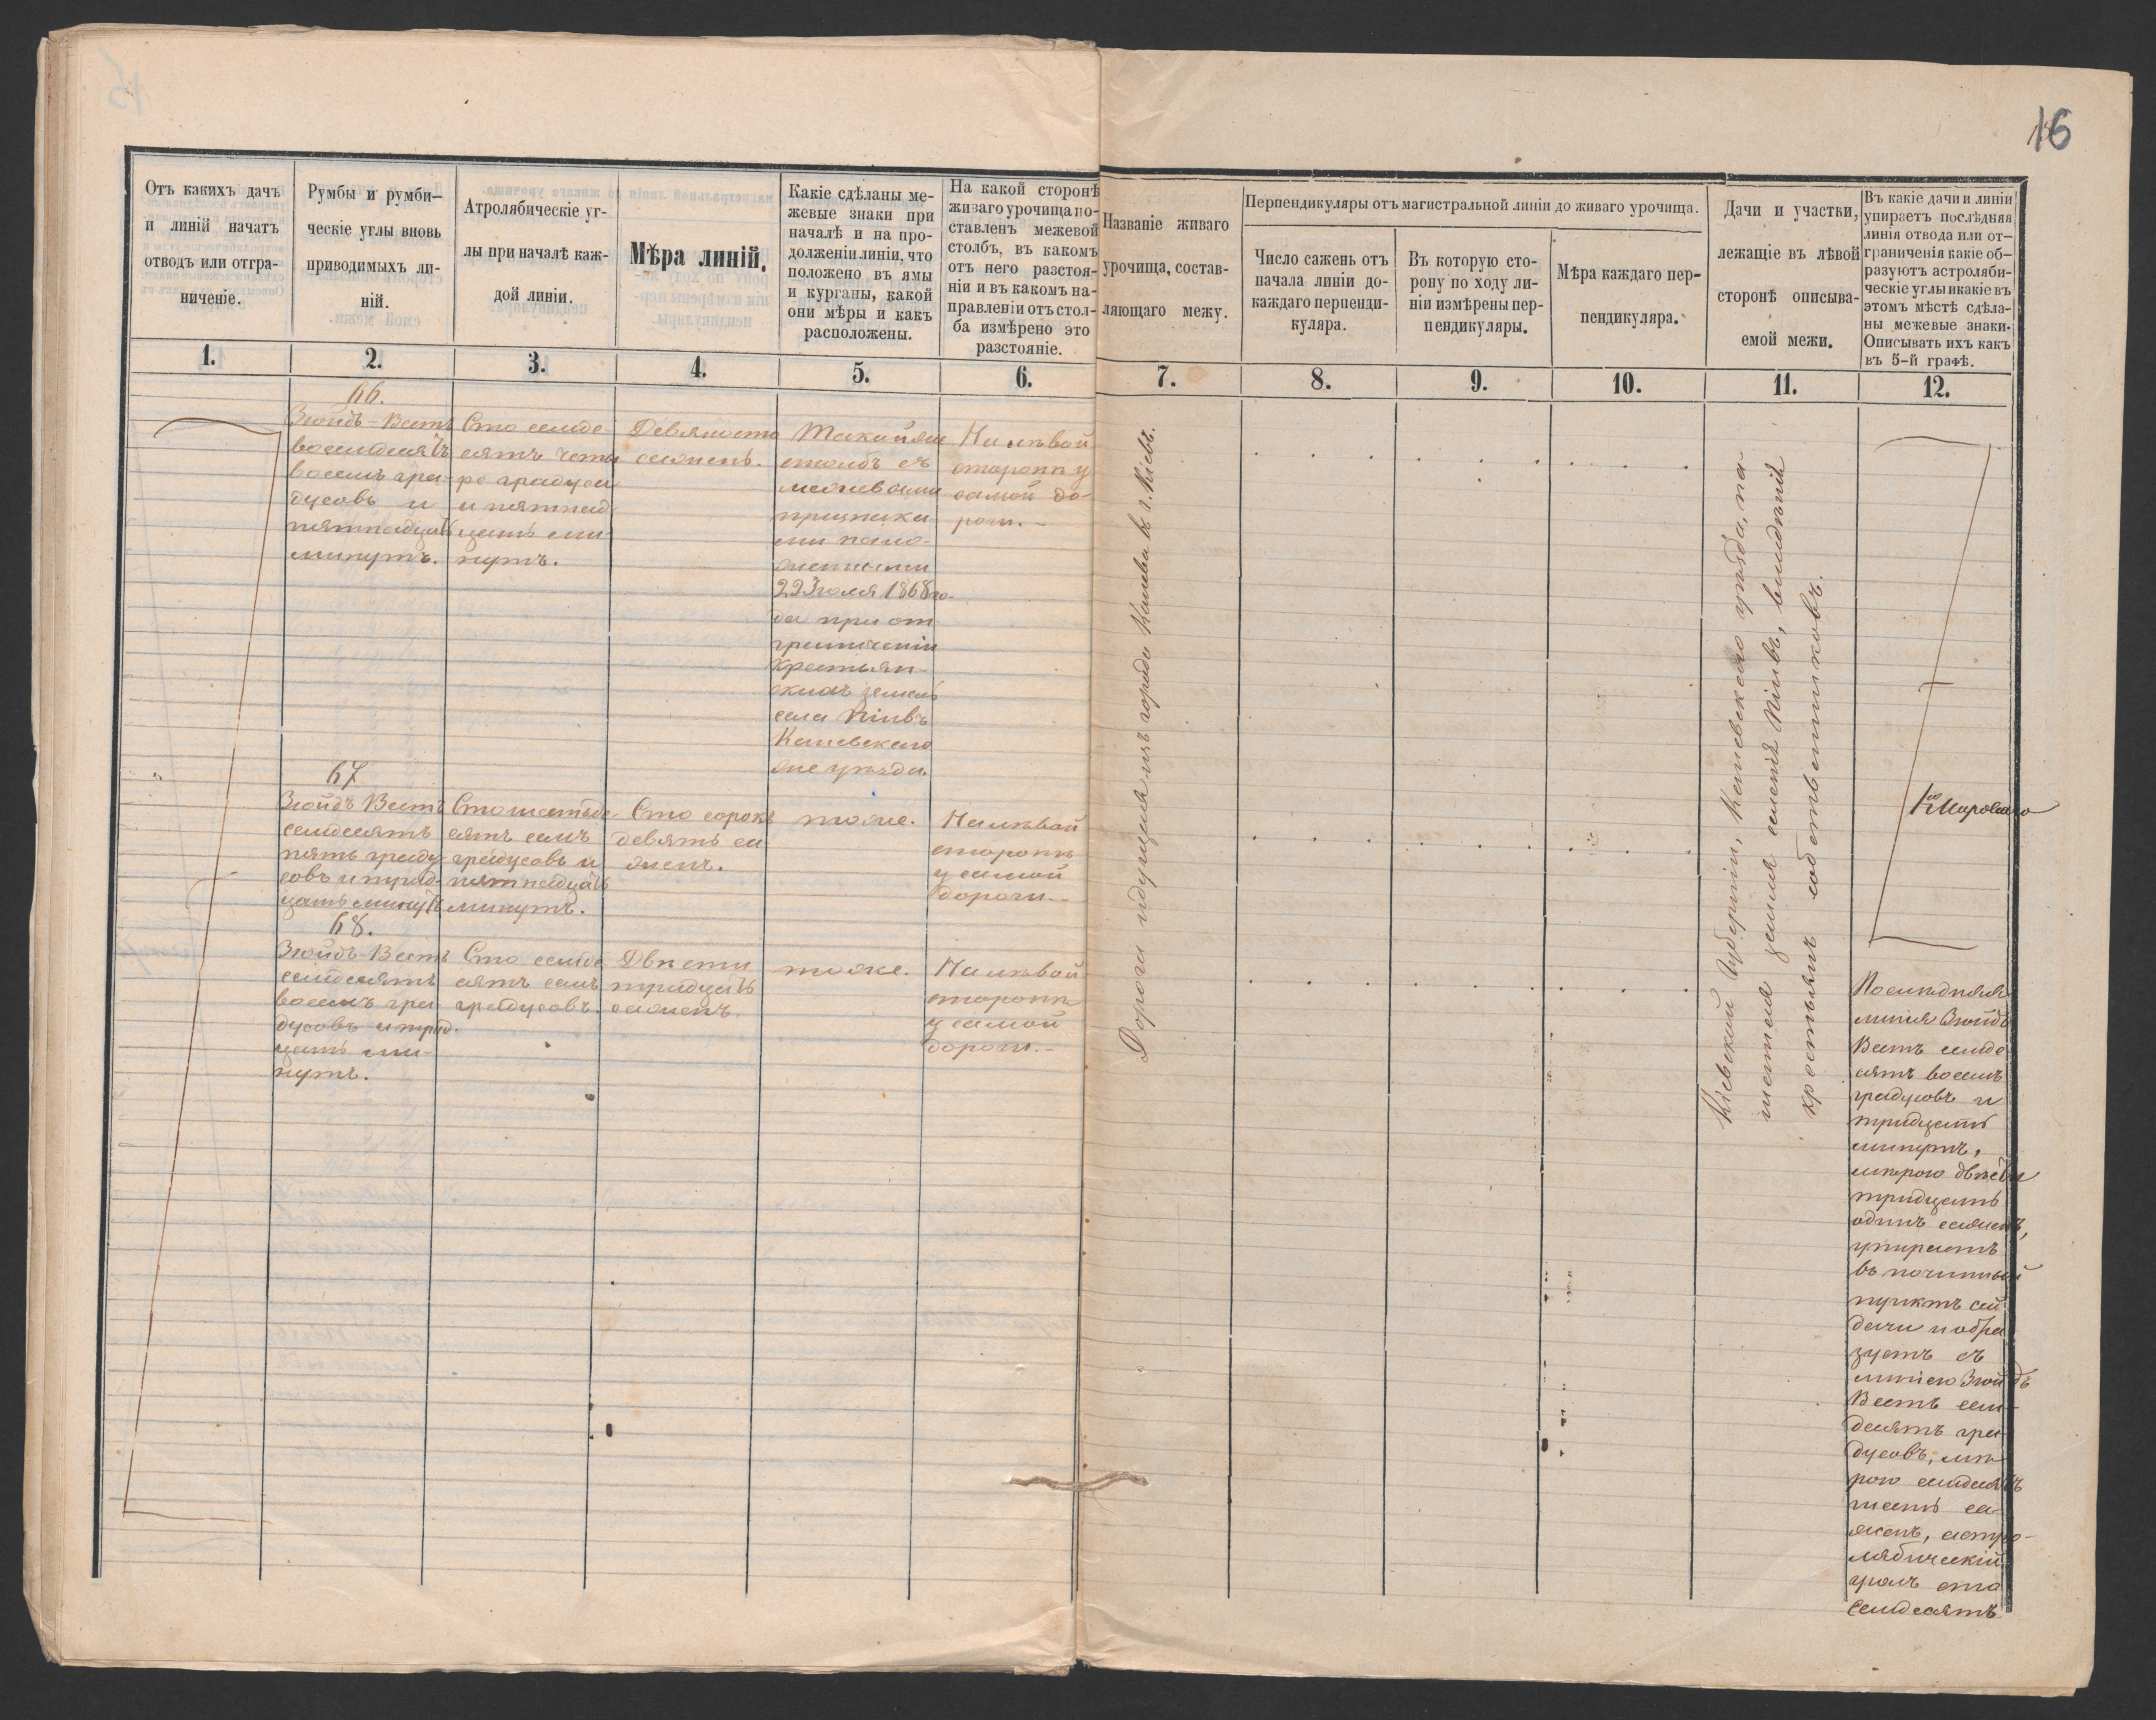 16
Отъ какихъ дачъ
и линій начатъ
отводъ или отгра-
ниченіе.
Румбы и румби-
ческіе углы вновь
приводимыхъ ли-
ній.
Атролябическіе уг-
лы при началѣ каж-
дой линіи.
Мѣра линій.
Какіе сдѣланы ме-
жевые знаки при
началѣ и на про-
долженіи линіи, что
положено въ ямы
и курганы, какой
они мѣры и какъ
расположены.
На какой сторонѣ
живаго урочища по-
ставленъ межевой
столбъ, въ какомъ
отъ него разстоя-
ніи и въ какомъ на-
правленіи отъ стол-
ба измѣрено это
разстояніе.
Названіе живаго
урочища, состав-
ляющаго межу.
Перпендикуляры отъ магистральной линіи до живаго урочища.
Число сажень отъ
начала линіи до-
каждаго перпенди-
куляра.
Въ которую сто-
рону по ходу ли-
ніи измѣрены пер-
пендикуляры.
Мѣра каждаго пер-
пендикуляра.
Дачи и участки,
лежащіе въ лѣвой
сторонѣ описыва-
емой межи.
Въ какіе дачи и линіи
упираетъ послѣдняя
линія отвода или от-
граниченія какіе об-
разуютъ астроляби-
ческіе углы и какіе въ
этомъ мѣстѣ сдѣла-
ны межевые знаки.
Описывать ихъ какъ
въ 5-й графѣ.
1. 2. 3. 4. 5. 6. 7. 8. 9. 10. 11. 12.
66.
Зюйдъ-Вестъ
восемдесятъ
восемь гра-
дусовъ и
пятнадцать
минутъ.
Сто семде-
сятъ четы
ре градуса
и пятнад
цать ми-
нутъ.
Девяносто
сажень.
Такой же
столбъ съ
межевыми
признака
ми поло-
женными
22 Іюля 1868 го-
да при от
граниченіи
крестьян-
скихъ земель
села Пивъ
Каневскаго
же уѣзда.
На лѣвой
сторонѣ у
самой до-
роги.-
67
Зюйдъ Вестъ
семдесятъ
пять граду
совъ и трид-
цать минутъ
Сто шестьде
сятъ семь
градусовъ и
пятнадцать
минутъ.
Сто сорокъ
девять са
жень.
тоже.
На лѣвой
сторонѣ
у самой
дороги.-
68.
Зюйдъ-Вестъ
семдесятъ
восемь гра
дусовъ и трид.
цать ми-
нутъ.
Сто семьде
сятъ семь
градусовъ.
Двѣсти
тридцать
сажень.
тоже.
На лѣвой
сторонѣ
у самой
дороги.-
Дороги идущія изъ города Канева въ г. Кіевъ.
Кіевской Губерніи, Каневскаго уѣзда, па-
хотная земля селенія Пивъ, владѣнія
крестьянъ собственниковъ.
Послѣдняя
линія Зюйдъ
Вестъ семде
сятъ восемь
градусовъ и
тридцать
минутъ,
мѣрою двѣсти
тридцать
одинъ сажень,
упираетъ
въ починный
пунктъ сей
дачи и обра
зуетъ съ
линіею Зюйдъ
Вестъ сем-
десятъ гра
дусовъ, мѣ
рою семдесятъ
шесть са
жень, астро-
лябическій
уголъ сто
семдесятъ